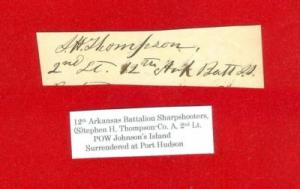 S.H. Thompson,
2nd Lt. 12th Ark Batt
12th Arkansas Battalion Sharpshooters,
(S)tephen H. Thompson-Co. A, 2nd Lt.
POW Johnson's Island
Surrendered at Port Hudson